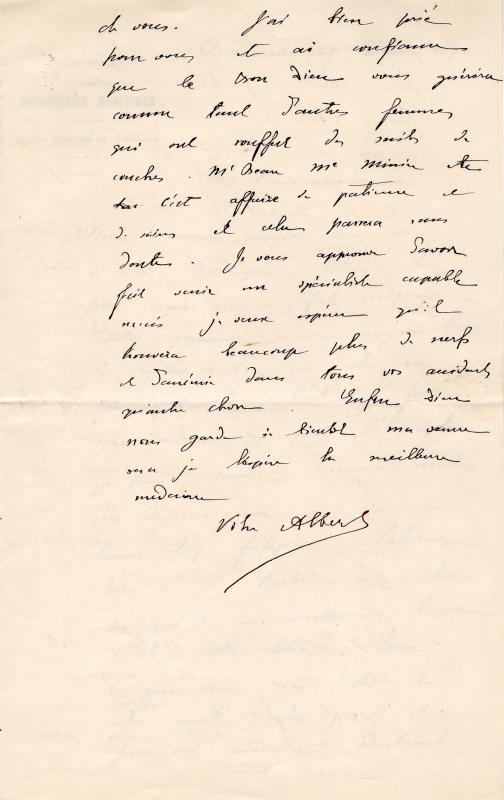 de vous. J'ai bien prié
pour vous et ai confiance
que le Bon Dieu vous guérira
comme tant d'autres femmes
qui ont souffert des suites de
couches. Me Beau Me Minier etc
C'est affaire de patience et
de soins et cela passera sans
doute. Je vous approuve d'avoir
fait venir un spécialiste capable
mais je veux espérer qu'il
trouvera beaucoup plus de nerfs
et d'anémie dans tous vos accidents
qu'autre chose. Enfin Dieu
nous garde à bientôt ma venue
sera je l'espère la meilleure
médecine
Votre Albert